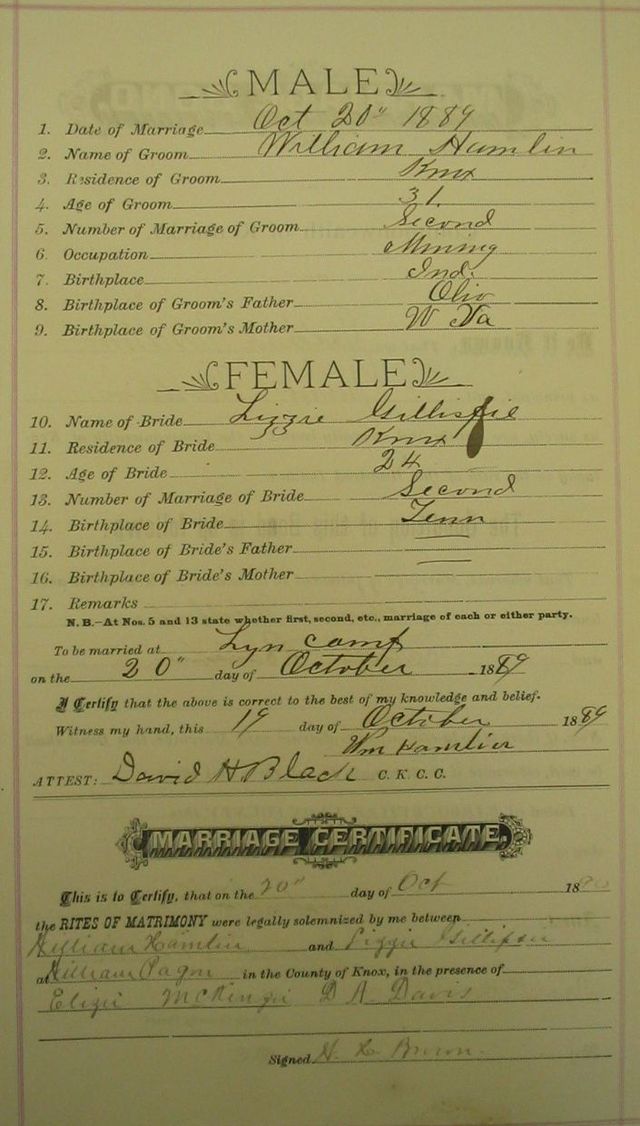 MALE
1. Date of Marriage Oct 20" 1889
2. Name of Groom William Hamlin
3. Residence of Groom Knox
4. Age of Groom 31.
5. Number of Marriage of Groom Second
6. Occupation Mining
7. Birthplace Ind.
8. Birthplace of Groom's Father Ohio
9. Birthplace of Groom's Mother W Va
FEMALE
10. Name of Bride Lizzie Gillispie
11. Residence of Bride Knox
12. Age of Bride 24
13. Number of Marriage of Bride Second
14. Birthplace of Bride Tenn
15. Birthplace of Bride's Father
16. Birthplace of Bride's Mother
17. Remarks
N. B.—At Nos. 5 and 13 state whether first, second, etc., marriage of each or either party.
To be married at Lyn Camp
on the 20" day of October 1889
I Certify that the above is correct to the best of my knowledge and belief.
Witness my hand, this 19 day of October 1889
Wm Hamlin
ATTEST: David H Black C. K. C. C.
MARRIAGE CERTIFICATE.
This is to Certify, that on the 20" day of Oct 18
the RITES OF MATRIMONY were legally solemnized by me between
William Hamlin and Lizzie Gillipsie
at William in the County of Knox, in the presence of
Elizie McKinzie D A Davis
Signed Brown